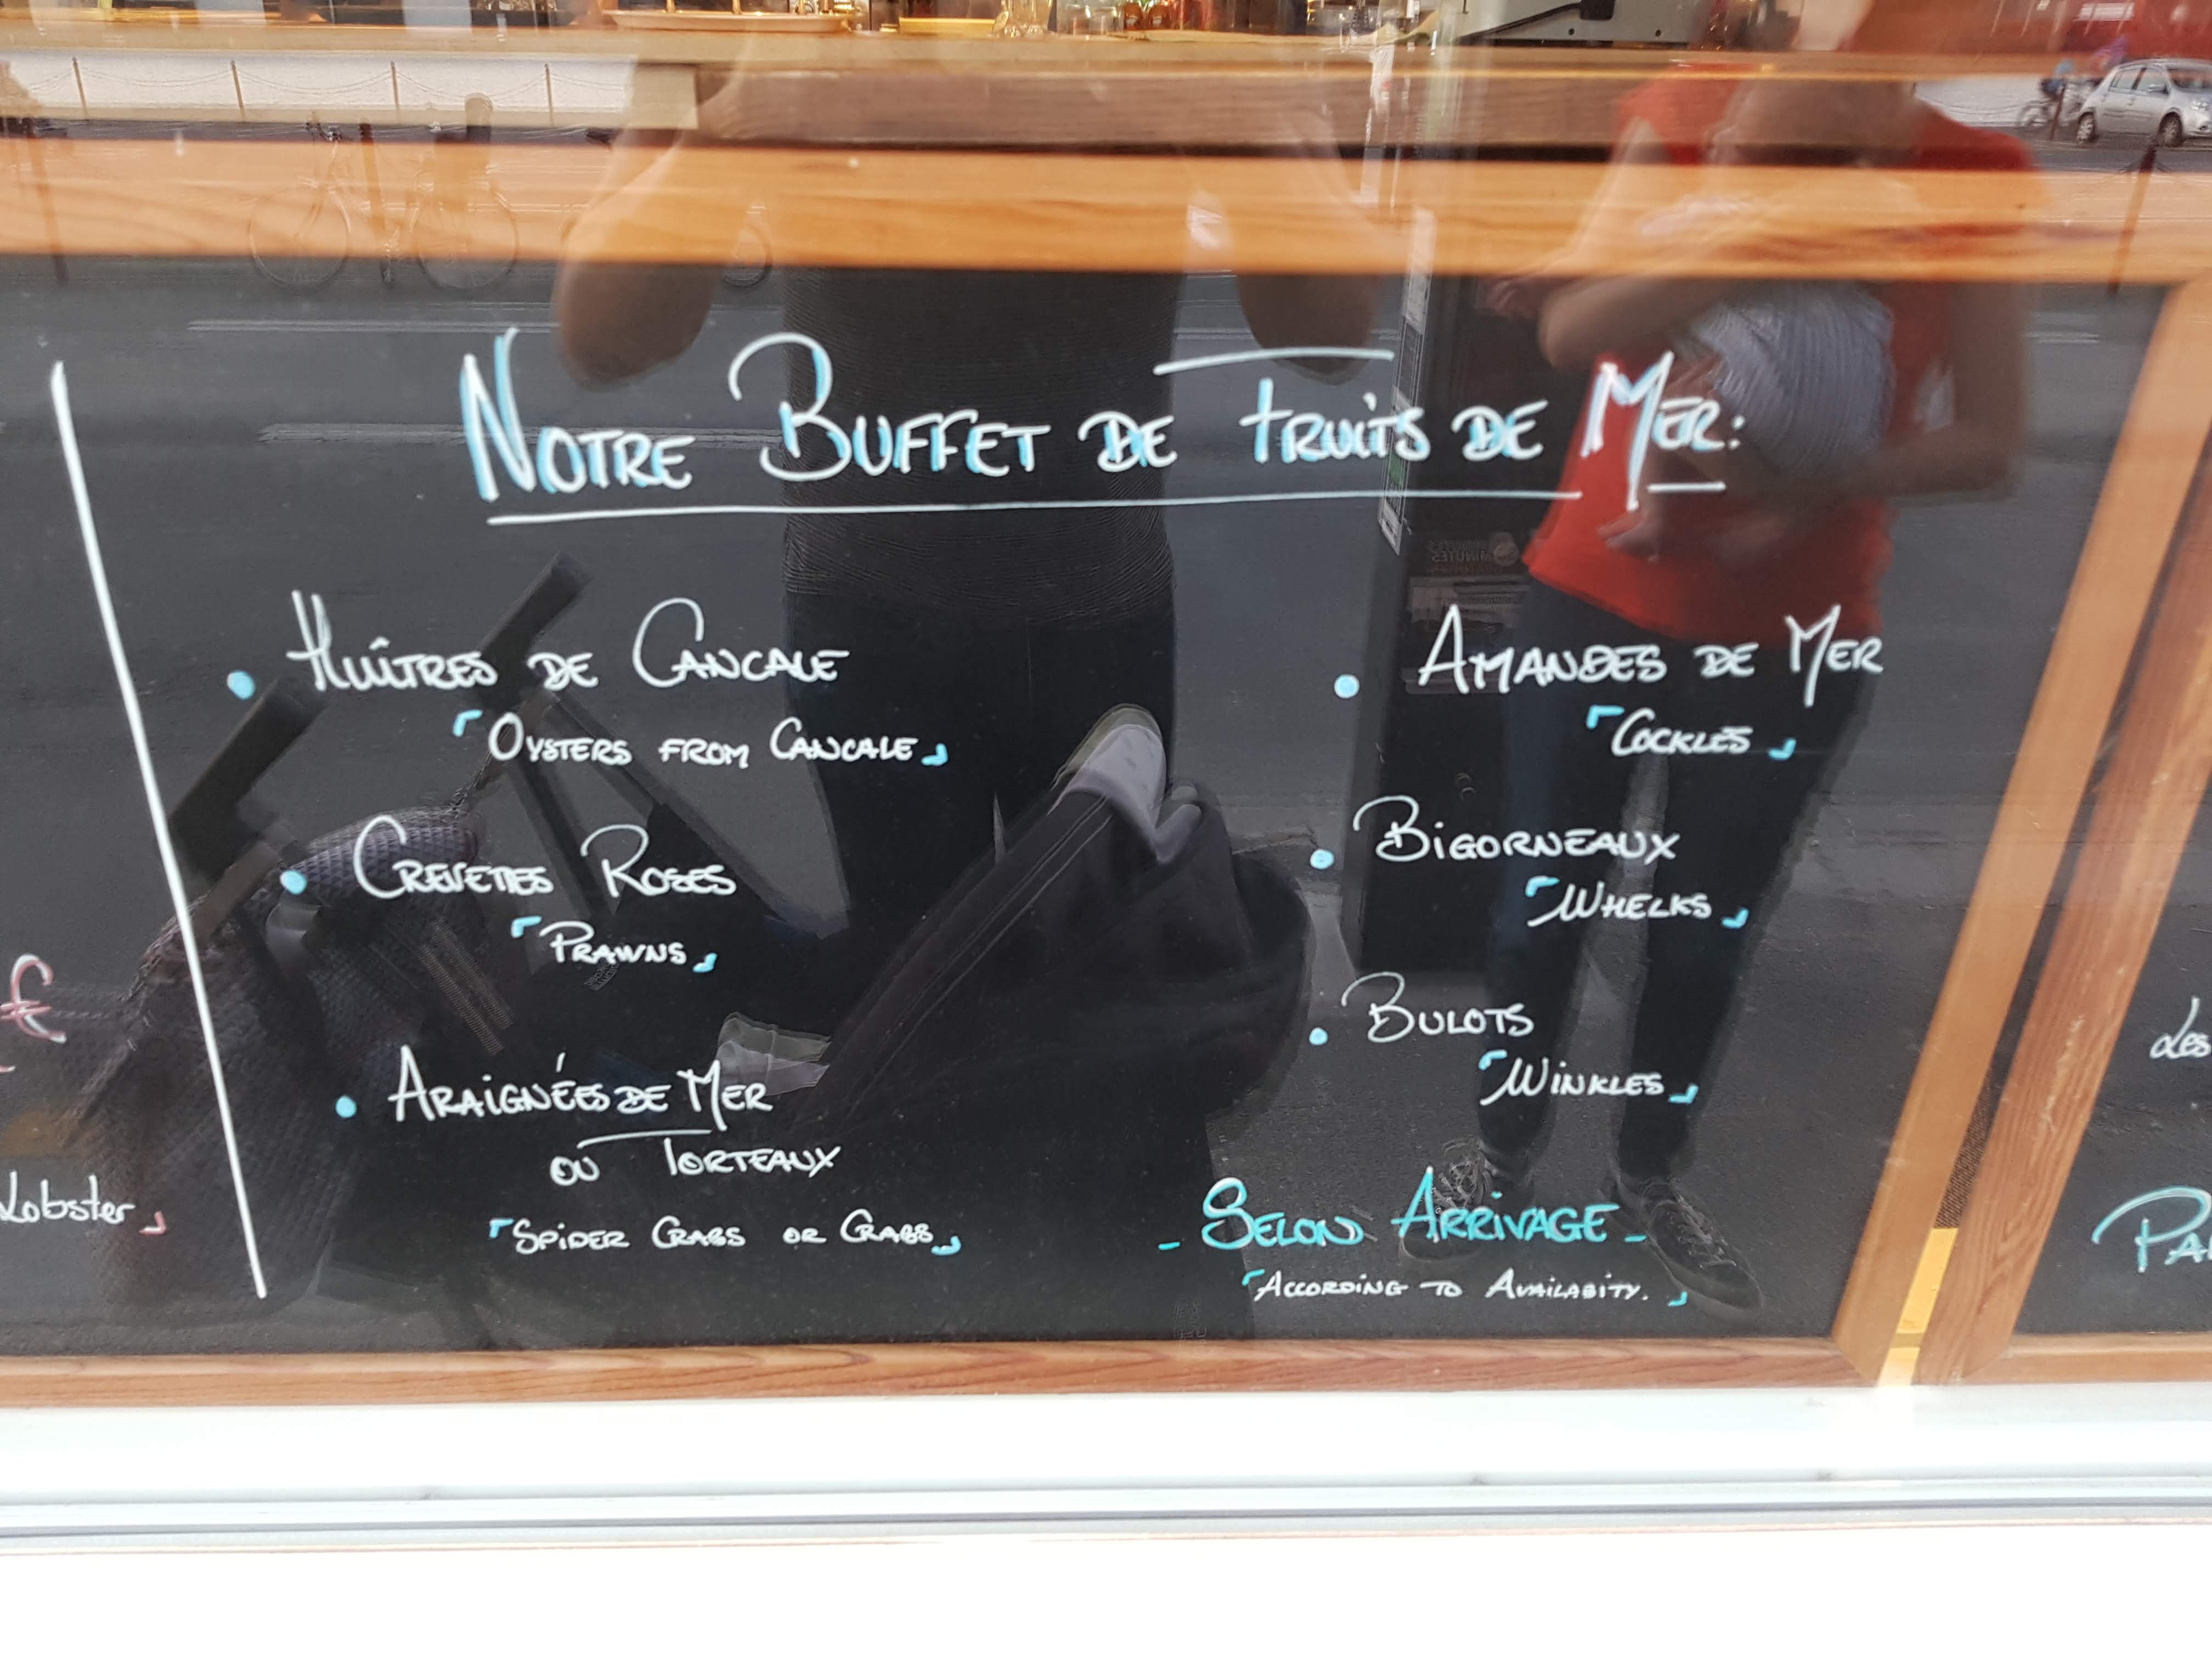 Notre Buffet de Fruits de Mer:
• Huîtres de Cancale
「Oysters from Cancale」
• Crevettes Roses
「Prawns」
• Araignées de Mer
ou Torteaux
「Spider Crabs or Crabs」
• Amandes de Mer
「Cockles」
• Bigorneaux
「Whelks」
• Bulots
「Winkles」
- Selon Arrivage -
「According to Availabity.」
€
Lobster」
Les